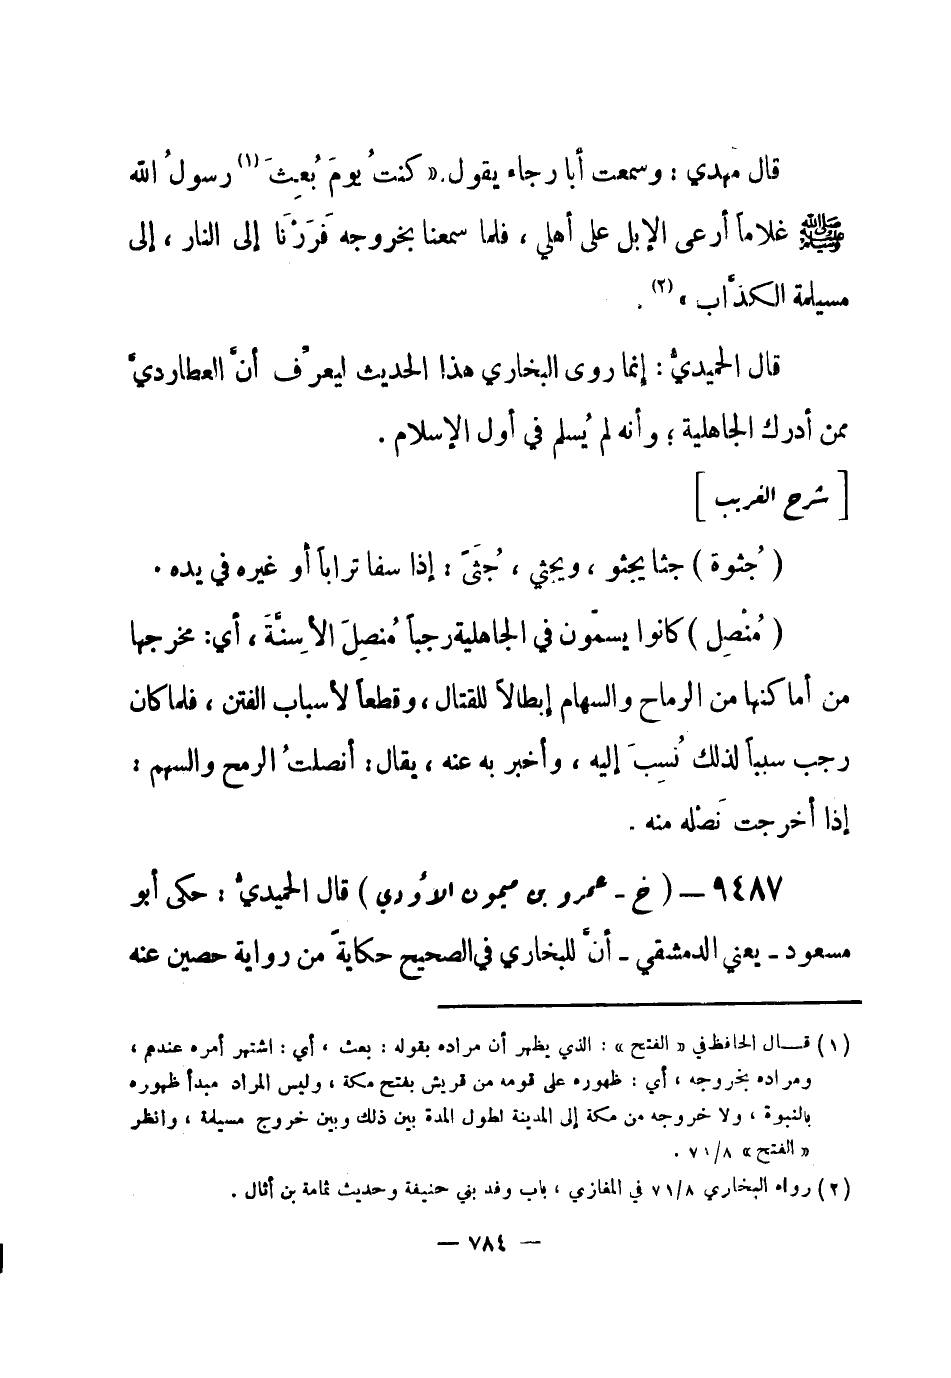 قال مهدي : وسمعت أبا رجاء يقول : « كنتُ يومَ بُعِثَ (١) رسولُ الله
ﷺ غلاماً أرعى الإبل على أهلي ، فلما سمعنا بخروجه فَرَرْنَا إلى النار ، إلى
مسيلمة الكذَّاب » (٢) .
قال الحميديُّ : إنما روى البخاري هذا الحديث ليعرَّف أنَّ العطارديَّ
ممن أدرك الجاهلية ؛ وأنه لم يُسلم في أول الإسلام .
[ شرح الغريب ]
( جُثوة ) جثا يجثو ، ويجثي ، جُثَىً : إذا سفا تراباً أو غيره في يده .
( مُنْصِل ) كانوا يسمّون في الجاهلية رجباً مُنصِلَ الأسِنَّةَ ، أي : مخرجها
من أماكنها من الرماح والسهام إبطالاً للقتال ، وقطعاً لأسباب الفتن ، فلما كان
رجب سبباً لذلك نُسِبَ إليه ، وأخبر به عنه ، يقال : أنصلتُ الرمح والسهم :
إذا أخرجت نَصْله منه .
٩٤٨٧ – ( خ - عمرو بن ميمون الأودي ) قال الحميديُّ : حكى أبو
مسعود - يعني الدمشقي - أنَّ للبخاري في الصحيح حكايةً من رواية حصين عنه
(١) قـــال الحافظ في « الفتح » : الذي يظهر أن مراده بقوله : بعث ، أي : اشتهر أمره عندهم ،
ومراده بخروجه ، أي : ظهوره على قومه من قريش بفتح مكة ، وليس المراد مبدأ ظهوره
بالنبوة ، ولا خروجه من مكة إلى المدينة لطول المدة بين ذلك وبين خروج مسيلمة ، وانظر
« الفتح » ٧١/٨ .
(٢) رواه البخاري ٧١/٨ في المغازي ، باب وفد بني حنيفة وحديث ثمامة بن أثال .
— ٧٨٤ —